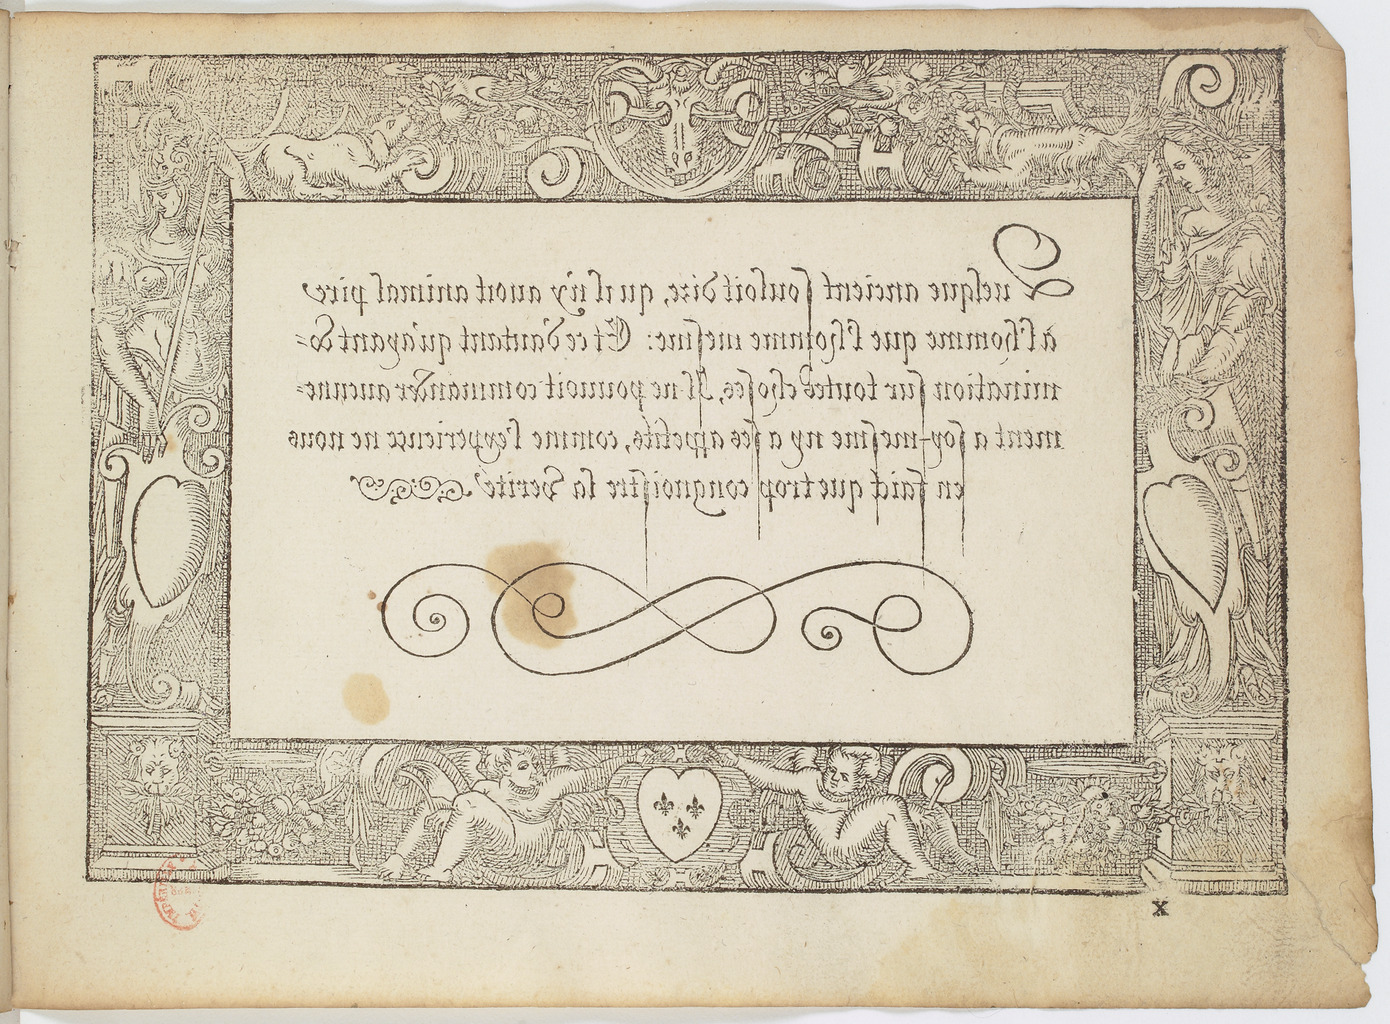 Quelque ancient souloit dire, qu'il n'y auoit animal pire
à l'homme que l'homme mesme: Et ce d'autant qu'ayant do-
mination sur toutes choses, Il ne pouuoit commander aucune-
ment a soy-mesme ny a ses apetits, comme l'experience ne nous
en faid que trop congnoistre la verité
X